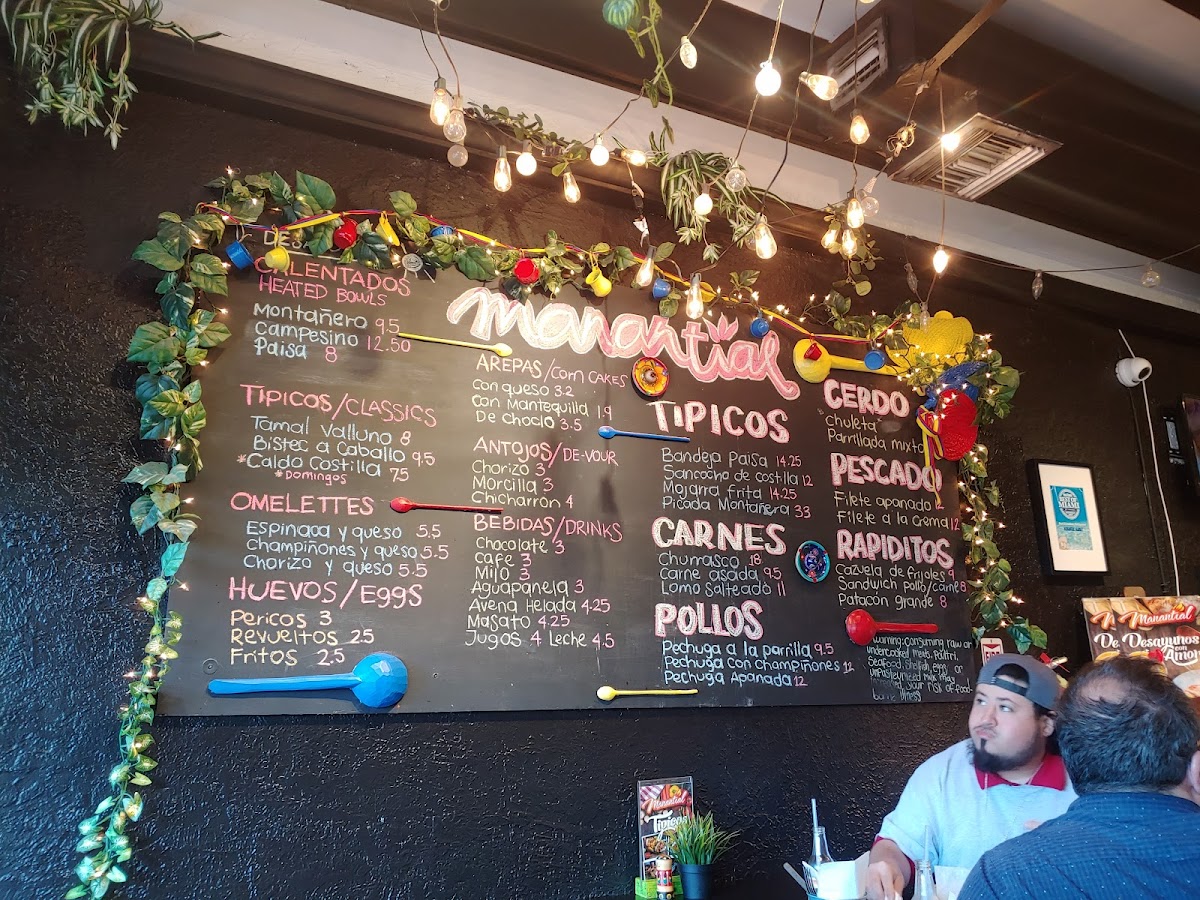 DES
CALENTADOS
HEATED BOWLS
Montañero 9.5
Campesino 12.50
Paisa 8
TIPICOS/CLASSICS
Tamal Valluno 8
Bistec a Caballo 9.5
*Caldo Costilla 7.5
*Domingos
OMELETTES
Espinaca y queso 5.5
Champiñones y queso 5.5
Chorizo y queso 5.5
HUEVOS/EGGS
Pericos 3
Revueltos 2.5
Fritos 2.5
Manantial
AREPAS/CORN CAKES
con queso 3.2
con Mantequilla 1.9
De choclo 3.5
ANTOJOS/DE-VOUR
Chorizo 3
Morcilla 3
Chicharrón 4
BEBIDAS/DRINKS
Chocolate 3
Cafe 3
Milo 3
Aguapanela 3
Avena Helada 4.25
Masato 4.25
Jugos 4 Leche 4.5
TIPICOS
Bandeja Paisa 14.25
Sancocho de costilla 12
Mojarra frita 14.25
Picada Montañera 33
CARNES
Churrasco 18
Carne asada 9.5
Lomo Salteado 11
POLLOS
Pechuga a la parrilla 9.5
Pechuga con champiñones 12
Pechuga Apanada 12
CERDO
chuleta
Parrillada mixto
PESCADO
Filete apanado 12
Filete a la crema 12
RAPIDITOS
Cazuela de frijoles 9
Sandwich Pollo/carne 8
Patacón grande 8
Warning: consuming raw or
undercooked meats, poultry,
seafood, shellfish, eggs, or
unpasteurized milk may
your risk of food-
borne illness
BEST OF
MIAMI
Manantial
De Desayunos
con
Amor
Manantial
Tipicos